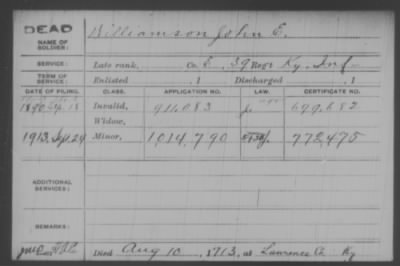 DEAD
NAME OF SOLDIER: Williamson John E.
SERVICE: Late rank, Co. E. 39 Reg't Ky. Inf
TERM OF SERVICE: Enlisted , 1 Discharged , 1
DATE OF FILING. CLASS. APPLICATION NO. LAW. CERTIFICATE NO.
1890, Sep. 18 Invalid, 911,083 679,682
Widow,
1913, Sept. 29 Minor, 1,014,790 772,475
ADDITIONAL SERVICES:
REMARKS:
Died Aug 10, 1913, at Lawrence Co Ky